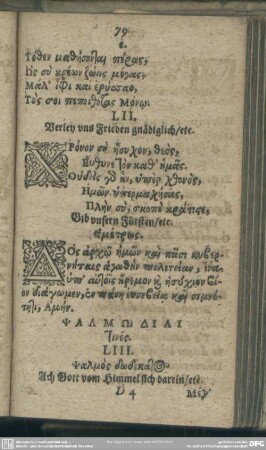 79
6.
Τόθεν μαθήσονται πέρας,
Εἷς σὺ κρέων ζώεις μέγας,
Μάλ' ἶφι καὶ ἐρύσσαο,
Τὼς σοὶ πεποιθότας Μόνῳ.
LII.
Verley vns Frieden gnådiglich/etc.
ΧΡόνον σὺ ἥσυχον, θεὸς,
Εὔθυνε τὸν καθ' ἡμᾶς.
Οὐδεὶς γὸ ἦν, ὑπὲρ χθονὸς,
Ἡμῶν ὑπερμαχήσας,
Πλὴν σὺ, σκοπὲ κράτιστε,
Gib vnsern Fürsten/etc.
ἀμέτρως.
ΔΟς ἀρχῷ ἡμῶν καὶ πᾶσι κυβερ-
νήταις ἀγαθὴν πολιτείαν, ἵνα
ὑπ' αὐτοῖς ἤρεμον κỳ ἡσύχιον βί-
ον διάγωμεν, ἐν πάσῃ εὐσεβείᾳ καὶ σεμνό-
τητι, Ἀμήν.
ΨΑΛΜΩΔΙΑΙ
τινές.
LIII.
Ψαλμὸς δωδέκατος
Ach Gott vom Himmel sich darein/etc.
D 4
Μὲν